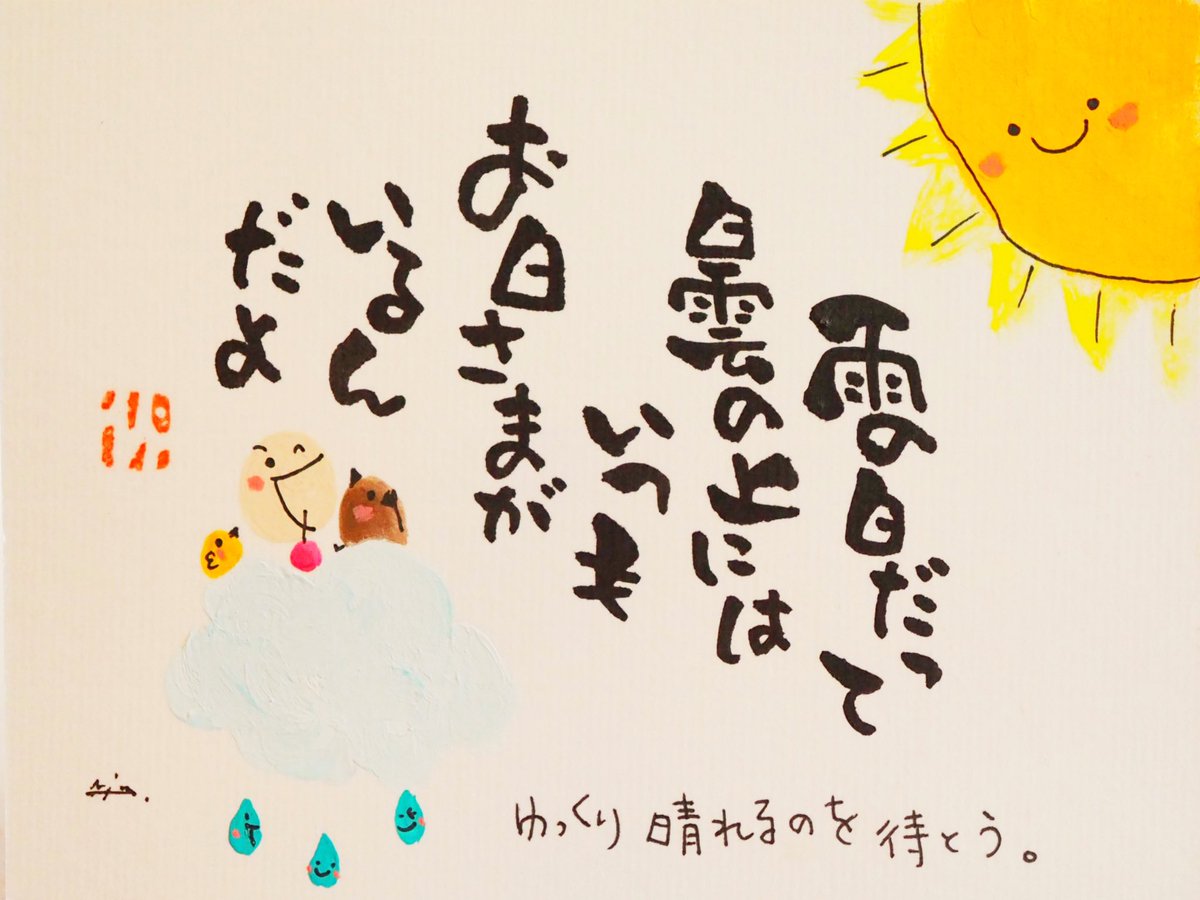 雨の日だって
曇の上には
いつも
お日さまが
いるん
だよ
ゆっくり晴れるのを待とう。